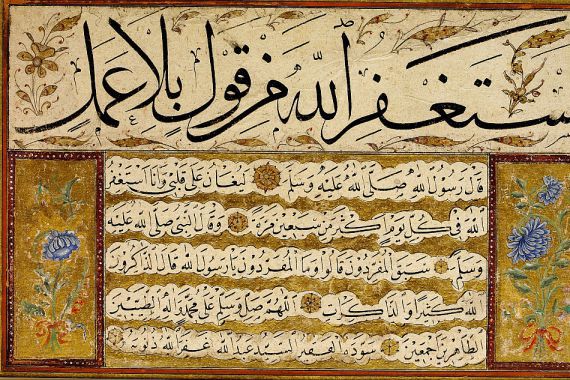 ستغفر الله من قول بلا عمل
قال رسول الله صلى الله عليه وسلم ليغان على قلبي وانا استغفر
الله في كل يوم اكثر من سبعين مرة وقال النبي صلى الله عليه
وسلم سبق المفردون قالوا وما المفردون يا رسول الله قال الذاكرون
الله كثيرا والذاكرات اللهم صل وسلم على محمد واله الطيبين
الطاهرين اجمعين سوده الفقير السيد عبد الله غفر الله ذنوبه